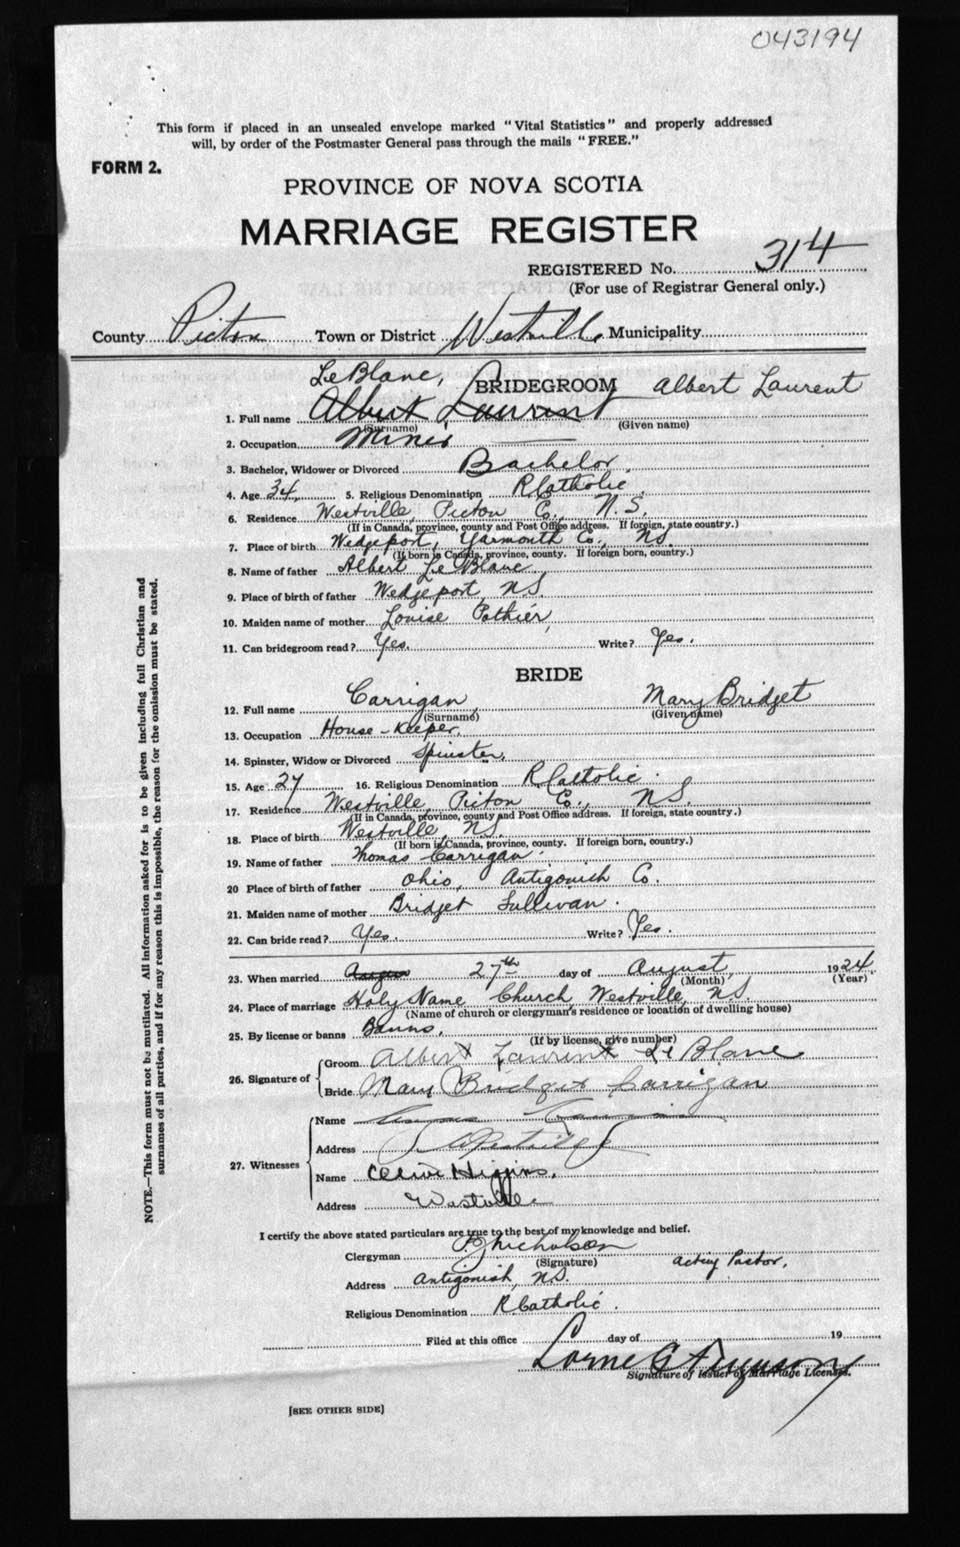 043194
This form if placed in an unsealed envelope marked "Vital Statistics" and properly addressed
will, by order of the Postmaster General pass through the mails "FREE."
FORM 2.
PROVINCE OF NOVA SCOTIA
MARRIAGE REGISTER
REGISTERED No. 314
(For use of Registrar General only.)
County Picton Town or District Westville Municipality
LeBlanc, BRIDEGROOM Albert Laurent
1. Full name Albert Laurent
(Surname) (Given name)
2. Occupation Miner
3. Bachelor, Widower or Divorced Bachelor.
4. Age 34. 5. Religious Denomination R Catholic.
6. Residence Westville, Picton Co., N.S.
(If in Canada, province, county and Post Office address. If foreign, state country.)
7. Place of birth Wedgeport, Yarmouth Co., NS.
(If born in Canada, province, county. If foreign born, country.)
8. Name of father Albert LeBlanc
9. Place of birth of father Wedgeport, NS
10. Maiden name of mother Louise Pothier,
11. Can bridegroom read? Yes. Write? Yes.
BRIDE
12. Full name Carrigan Mary Bridget
(Surname) (Given name)
13. Occupation House-Keeper.
14. Spinster, Widow or Divorced Spinster.
15. Age 27 16. Religious Denomination R Catholic.
17. Residence Westville, Picton Co., NS.
(If in Canada, province, county and Post Office address. If foreign, state country.)
18. Place of birth Westville, NS.
(If born in Canada, province, county. If foreign born, country.)
19. Name of father Thomas Carrigan.
20 Place of birth of father Ohio, Antigonish Co.
21. Maiden name of mother Bridget Sullivan.
22. Can bride read? Yes. Write? Yes.
23. When married 27th day of August, 1924.
(Month) (Year)
24. Place of marriage Holy Name Church, Westville, N.S.
(Name of church or clergyman's residence or location of dwelling house)
25. By license or banns Banns.
(If by license, give number)
26. Signature of
Groom Albert Laurent LeBlanc
Bride Mary Bridget Carrigan
27. Witnesses
Name
Address Westville
Name Higgins.
Address Westville
I certify the above stated particulars are true to the best of my knowledge and belief.
Clergyman Nicholson
(Signature) Acting Pastor.
Address Antigonish, NS.
Religious Denomination R Catholic.
Filed at this office day of 19
Lorne G Ferguson
Signature of Issuer of Marriage Licenses.
[SEE OTHER SIDE]
NOTE.—This form must not be mutilated. All information asked for is to be given including full Christian and
surnames of all parties, and if for any reason this is impossible, the reason for the omission must be stated.